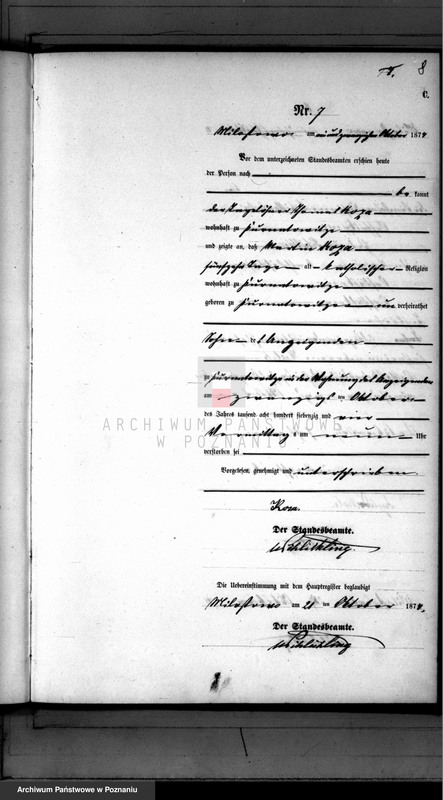 8
C.
Nr. 7
Milostowo am ein und zwanzigsten Oktober 1874
Vor dem unterzeichneten Standesbeamten erschien heute
der Person nach
be kannt
der Tagelöhner Thomas Koza
wohnhaft zu
und zeigte an, daß Martin Koza
fünfzehn Tage alt katholischer Religion
wohnhaft zu
geboren zu un verheirathet
Sohn des Anzeigenden
zu in der Wohnung des Anzeigenden
am zwanzigs ten Oktober
des Jahres tausend acht hundert siebenzig und vier
Vormittags um neun Uhr
verstorben sei
Vorgelesen, genehmigt und unterschrieben
Koza.
Der Standesbeamte.
Die Uebereinstimmung mit dem Hauptregister beglaubigt
Milostowo am 21 ten Oktober 1874.
Der Standesbeamte.
ARCHIWUM PAŃSTWOWE
W POZNANIU
Archiwum Państwowe w Poznaniu